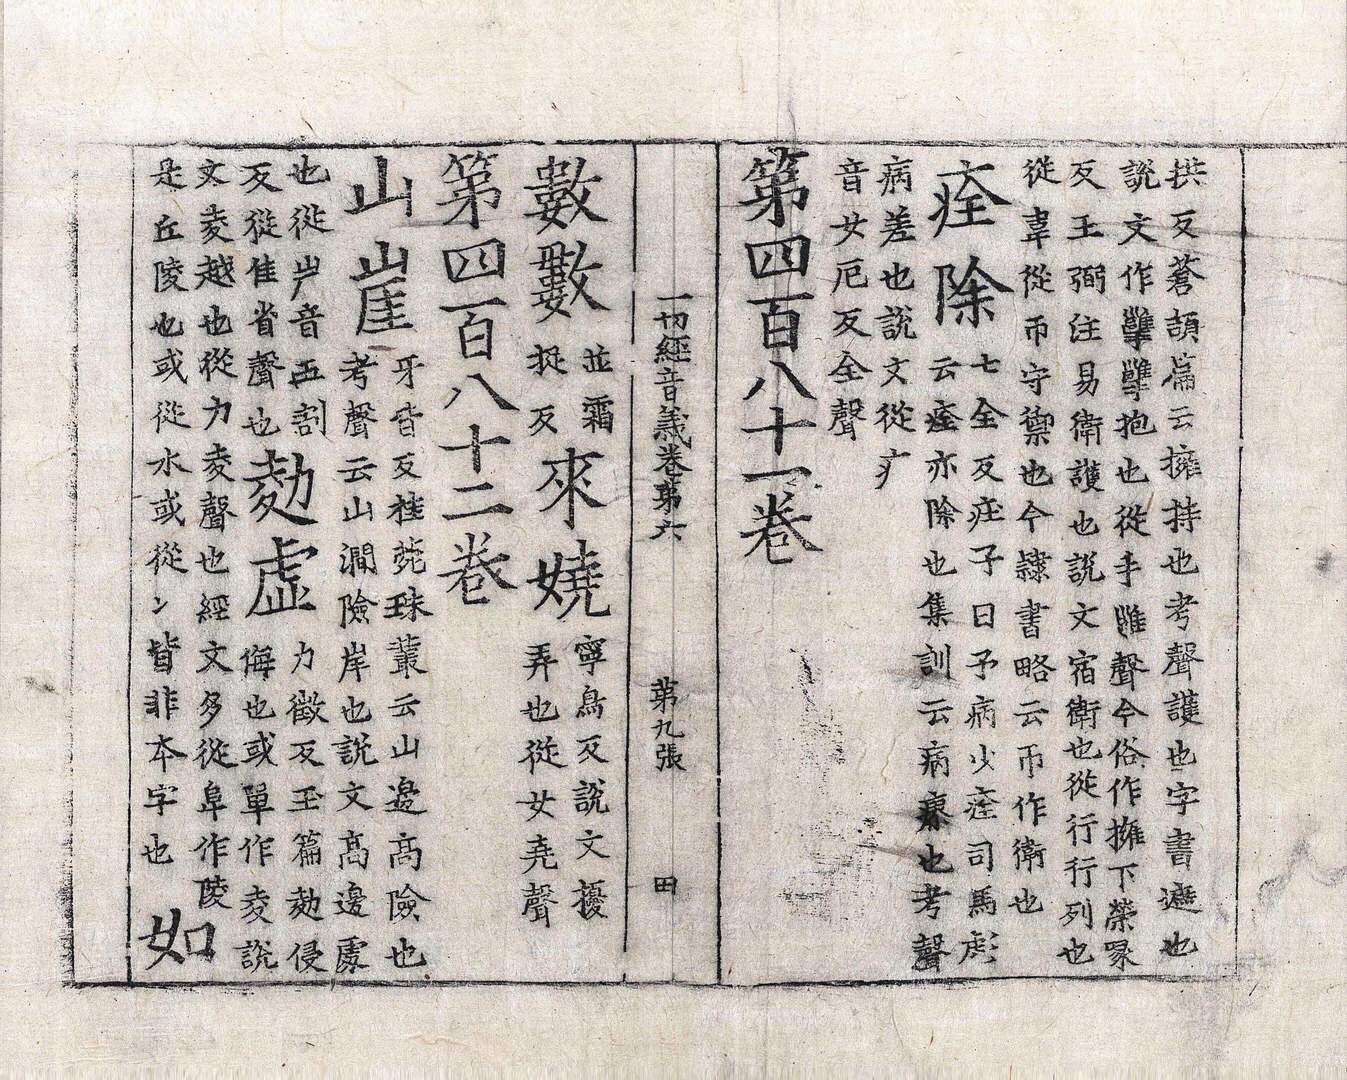 拱反蒼頡篇云擁持也考聲護也字書遮也
說文作㩳㩳抱也從手雝聲今俗作擁下榮
反王弼注易衛護也說文宿衛也從行行列也
從韋從帀守禦也今隸書略云帀作衛也
痊除
七全反庄子曰予病少痊司馬彪
云痊亦除也集訓云病瘳也考聲
病差也說文從疒
音女厄反全聲
第四百八十一卷
一切經音義卷第六 第九張 田
數數
並霜
捉反
來嬈
寧鳥反說文擾
弄也從女堯聲
第四百八十二卷
山崖
牙皆反桂菀珠叢云山邊高險也
考聲云山澗險岸也說文高邊處
也從屵音五割
反從隹省聲也
勍虛
力徵反玉篇勍侵
侮也或單作夌說
文夌越也從力夌聲也經文多從阜作陵
是丘陵也或從水或從冫皆非本字也
如